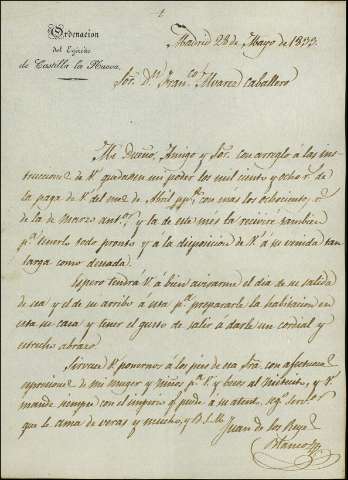 Ordenacion
del Egército
de Castilla la Nueva.
Madrid 28 de Mayo de 1833.
Sor. Dn. Franco. Alvarez Caballero
Mi Dueño, Amigo y Sor. con arreglo á las ins-
trucciones de V. quedan en mi poder los mil ciento y ocho r.
de la paga de V. del mes de Abril con más los ochocientos
de la de marzo antor. y la de este mes la recivire tambien
pa. tenerlo todo pronto y á la disposicion de V. á su venida tan
larga como deseada.
Espero tendrá V. á bien avisarme el dia de su salida
de esa y el de su arribo á esta pa. prepararle la habitacion en
esta su casa y tener el gusto de salir á darle un cordial y
estrecho abrazo.
Sirvase V. ponernos á los pies de esa Sra. con afectuosa
de mi muger y niños pa. V. y V.
mande siempre con el imperio qe. puede á su atento sego. servor.
que le ama de veras y mucho, y B. S. M.
Juan de los Reyes
Blanco